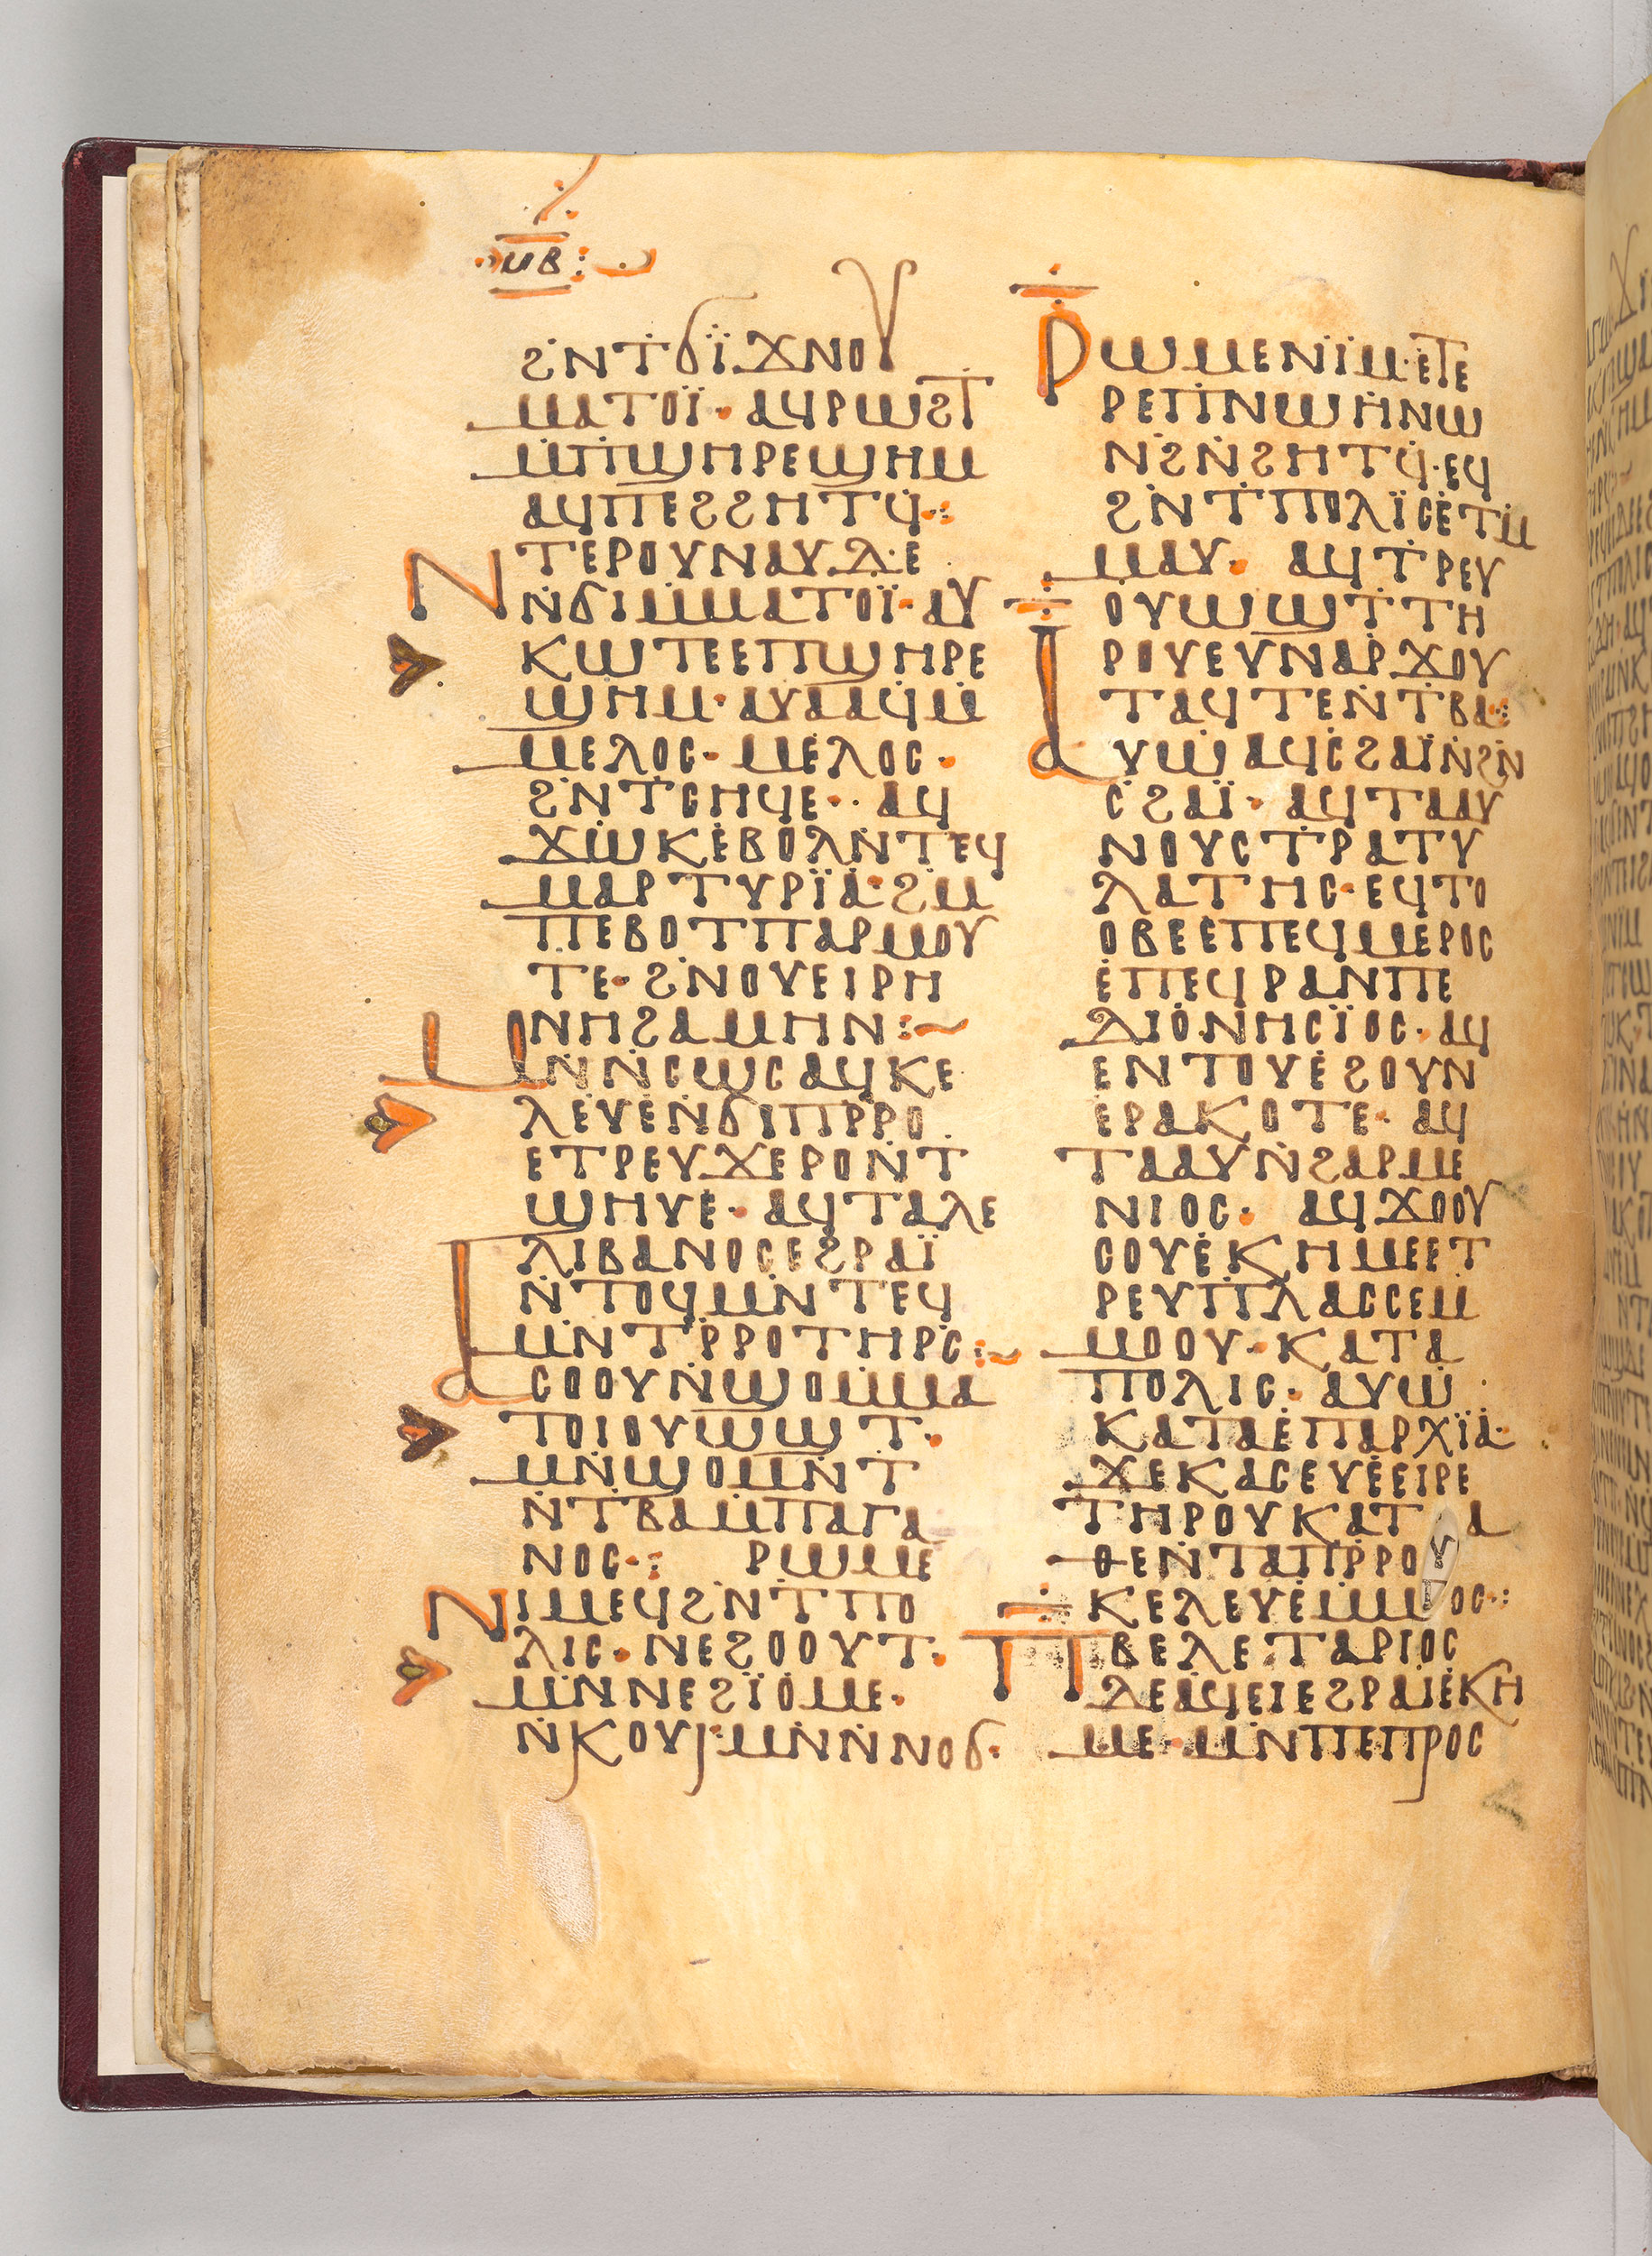 ⲙⲃ
ϩⲛⲧϭⲓ̈ϫⲛⲟⲩ
ⲙⲁⲧⲟⲓ̈· ⲁϥⲣⲱϩⲧ
ⲙⲡϣⲏⲣⲉϣⲏⲙ
ⲁϥⲡⲉϩϩⲏⲧϥ·:
ⲛⲧⲉⲣⲟⲩⲛⲁⲩⲇⲉ
ⲛϭⲓⲙⲙⲁⲧⲟⲓ̈· ⲁⲩ
ⲕⲱⲧⲉⲉⲡϣⲏⲣⲉ
ϣⲏⲙ· ⲁⲩⲁⲁϥⲙ
ⲙⲉⲗⲟⲥ· ⲙⲉⲗⲟⲥ·
ϩⲛⲧⲥⲏϥⲉ·· ⲁϥ
ϫⲱⲕⲉⲃⲟⲗⲛⲧⲉϥ
ⲙⲁⲣⲧⲩⲣⲓ̈ⲁ· ϩⲙ
ⲡⲉⲃⲟⲧⲡⲁⲣⲙⲟⲩ
ⲧⲉ· ϩⲛⲟⲩⲉⲓⲣⲏ
ⲛⲏϩⲁⲙⲏⲛ:~
ⲙⲛⲛⲥⲱⲥⲁϥⲕⲉ
ⲗⲉⲩⲉⲛϭⲓⲡⲣⲣⲟ
ⲉⲧⲣⲉⲩϫⲉⲣⲟⲛⲧ
ϣⲏⲩⲉ· ⲁϥⲧⲁⲗⲉ
ⲗⲓⲃⲁⲛⲟⲥⲉϩⲣⲁⲓ̈
ⲛⲧⲟϥⲙⲛⲧⲉϥ
ⲙⲛⲧⲣⲣⲟⲧⲏⲣⲥ:~
ⲁⲥⲟⲟⲩⲛϣⲟⲙⲙⲁ
ⲧⲟⲓⲟⲩⲱϣⲧ·
ⲙⲛϣⲟⲙⲛⲧ
ⲛⲧⲃⲁⲙⲡⲁⲅⲁ
ⲛⲟⲥ·: ⲣⲱⲙⲉ
ⲛⲓⲙⲉϥϩⲛⲧⲡⲟ
ⲗⲓⲥ· ⲛⲉϩⲟⲟⲩⲧ·
ⲙⲛⲛⲉϩⲓ̈ⲟⲙⲉ·
ⲛⲕⲟⲩⲓ· ⲙⲛⲛⲛⲟϭ·
ⲣⲱⲙⲉⲛⲓ̈ⲙ· ⲉⲧⲉ
ⲣⲉⲡⲡⲛϣⲏⲛϣ
ⲛϩⲛϩⲏⲧϥ· ⲉϥ
ϩⲛⲧⲡⲟⲗⲓ̈ⲥⲉⲧⲙ
ⲙⲁⲩ· ⲁϥⲧⲣⲉⲩ
ⲟⲩⲱϣⲧⲧⲏ
ⲣⲟⲩⲉⲩⲛⲁⲣϫⲟⲩ
ⲧⲁϥⲧⲉⲛⲧⲃⲁ:
ⲁⲩⲱⲁϥⲥϩⲁⲓ̈ⲛϩⲛ
ⲥϩⲁⲓ̈· ⲁϥⲧⲁⲁⲩ
ⲛⲟⲩⲥⲧⲣⲁⲧⲩ
ⲗⲁⲧⲏⲥ· ⲉϥⲧⲟ
ⲟⲃⲉⲉⲡⲉϥⲙⲉⲣⲟⲥ
ⲉⲡⲉϥⲣⲁⲛⲡⲉ
ⲇⲓⲟⲛⲏⲥⲓ̈ⲟⲥ· ⲁϥ
ⲉⲛⲧⲟⲩⲉϩⲟⲩⲛ
ⲉⲣⲁⲕⲟⲧⲉ· ⲁϥ
ⲧⲁⲁⲩⲛϩⲁⲣⲙⲉ
ⲛⲓⲟⲥ· ⲁϥϫⲟⲟⲩ
ⲥⲟⲩⲉⲕⲏⲙⲉⲉⲧ
ⲣⲉⲩⲡⲗⲁⲥⲥⲉⲙ
ⲙⲟⲟⲩ· ⲕⲁⲧⲁ
ⲡⲟⲗⲓⲥ· ⲁⲩⲱ
ⲕⲁⲧⲁⲉⲡⲁⲣⲭⲓ̈ⲁ·
ϫⲉⲕⲁⲥⲉⲩⲉⲉⲓⲣⲉ
ⲧⲏⲣⲟⲩⲕⲁⲧⲁ
ⲑⲉⲛⲧⲁⲡⲣⲣⲟⲩ
ⲕⲉⲗⲉⲩⲉⲙⲙⲟⲥ·:
ⲡⲃⲉⲗⲉⲧⲁⲣⲓⲟⲥ
ⲇⲉⲁϥⲉⲓⲉϩⲣⲁⲓⲉⲕⲏ
ⲙⲉ· ⲙⲛⲡⲉⲡⲣⲟⲥ